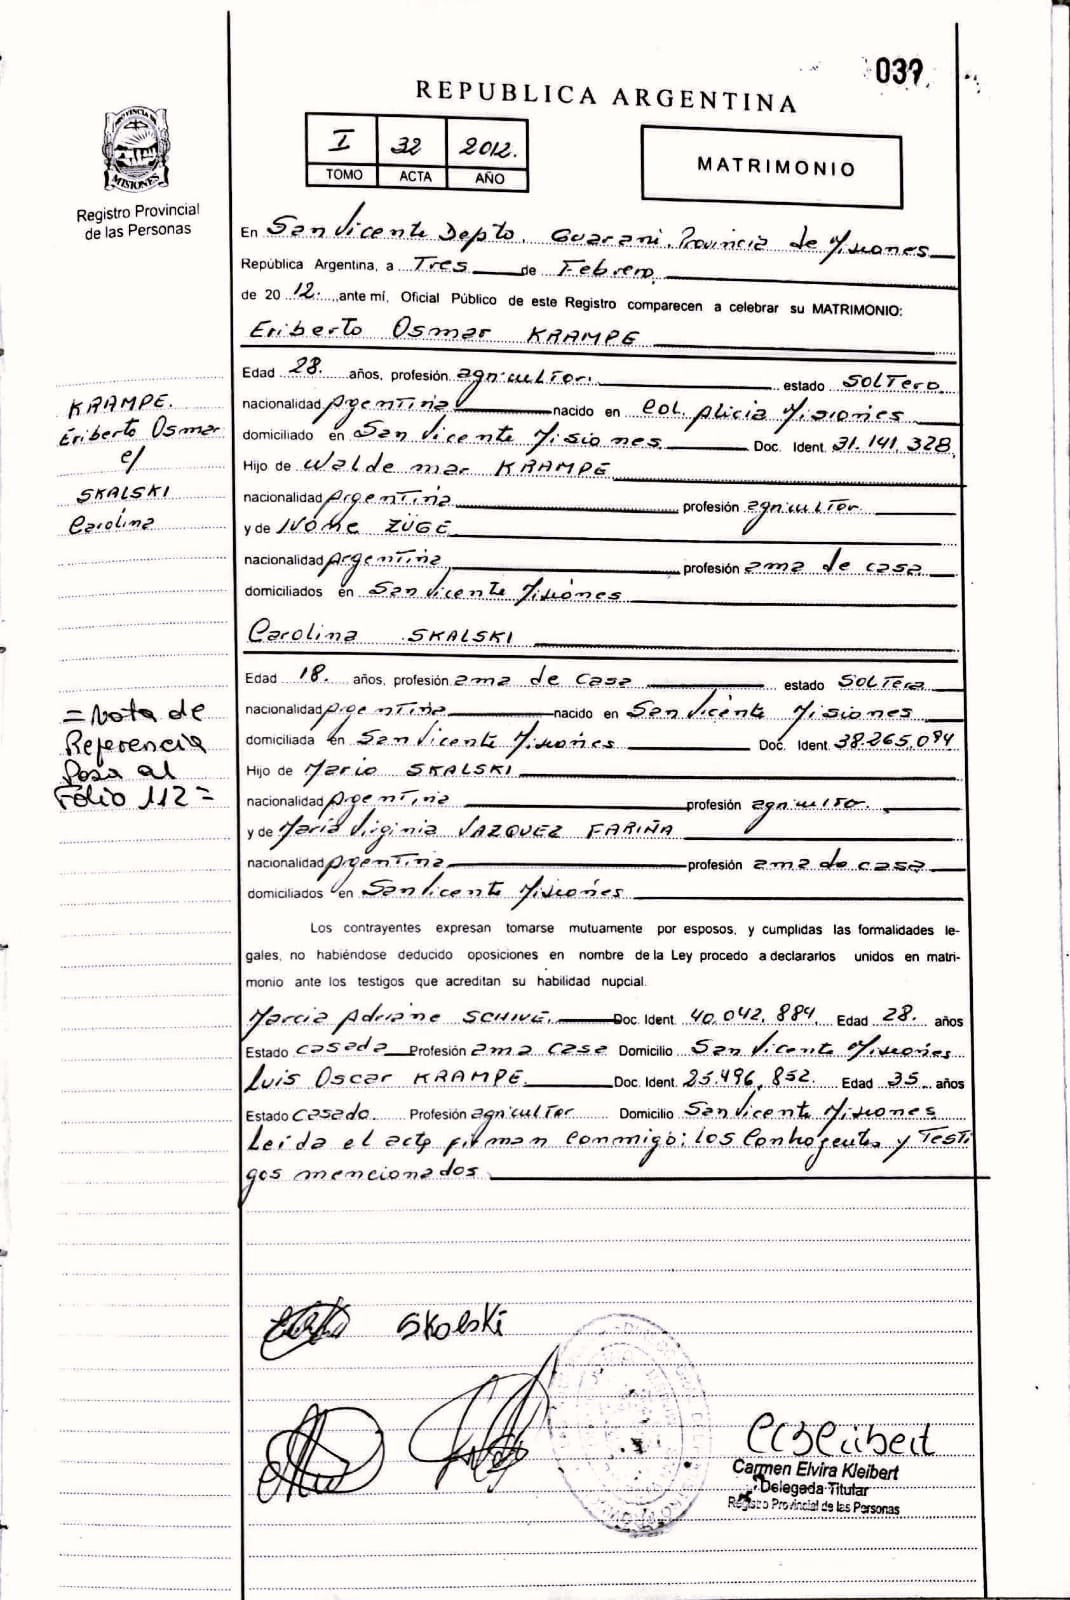 039
REPUBLICA ARGENTINA
PROVINCIA DE
MISIONES
Registro Provincial
de las Personas
I 32 2012.
TOMO ACTA AÑO
MATRIMONIO
En San Vicente Depto. Guarani. Provincia de Misiones
República Argentina, a Tres de Febrero
de 20 12. ,ante mí, Oficial Público de este Registro comparecen a celebrar su MATRIMONIO:
Eriberto Osmar KRAMPE
Edad 28. años, profesión agricultor. estado SOLTero
nacionalidad Argentina nacido en COL. Alicia Misiones
domiciliado en San Vicente Misiones Doc. Ident. 31.141.328
Hijo de Waldemar KRAMPE
nacionalidad Argentina profesión agricultor
y de IVONE ZUGE
nacionalidad Argentina profesión ama de casa
domiciliados en San Vicente Misiones
Carolina SKALSKI
Edad 18. años, profesión ama de casa estado SOLTera
nacionalidad Argentina nacido en San Vicente Misiones
domiciliada en San Vicente Misiones Doc. Ident. 38.265.094
Hijo de Mario SKALSKI
nacionalidad Argentina profesión agricultor.
y de Maria Virginia VAZQUEZ FARIÑA
nacionalidad Argentina profesión ama de casa
domiciliados en San Vicente Misiones
KRAMPE.
Eriberto Osmar
c/
SKALSKI
Carolina
= Nota de
Referencia
Pasa al
Folio 112 =
Los contrayentes expresan tomarse mutuamente por esposos, y cumplidas las formalidades le-
gales, no habiéndose deducido oposiciones en nombre de la Ley procedo a declararlos unidos en matri-
monio ante los testigos que acreditan su habilidad nupcial.
Marcia Adriane Doc. Ident. 40.042.884 Edad 28. años
Estado casada Profesión ama casa Domicilio San Vicente Misiones
Luis Oscar KRAMPE. Doc. Ident. 25.496.852. Edad 35 años
Estado Casado. Profesión agricultor Domicilio San Vicente Misiones
Leída el acta firman conmigo; los Contrayentes y Testi
gos mencionados
Skalski
Carmen Elvira Kleibert
Delegada Titular
Registro Provincial de las Personas